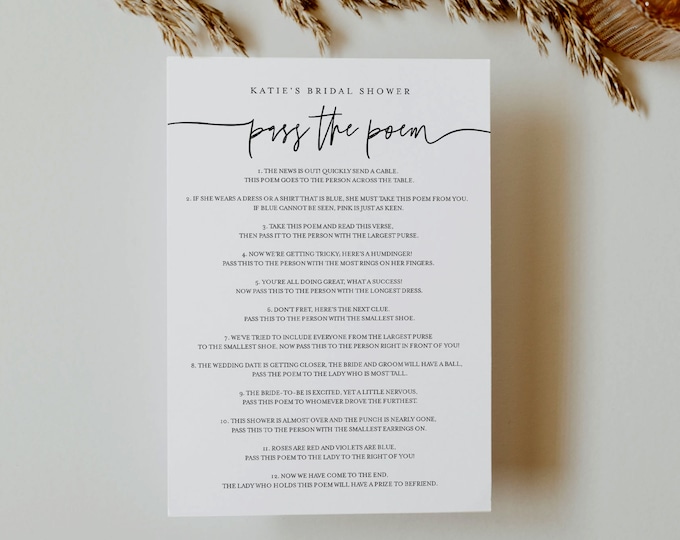 KATIE'S BRIDAL SHOWER
pass the poem
1. THE NEWS IS OUT! QUICKLY SEND A CABLE.
THIS POEM GOES TO THE PERSON ACROSS THE TABLE.
2. IF SHE WEARS A DRESS OR A SHIRT THAT IS BLUE, SHE MUST TAKE THIS POEM FROM YOU.
IF BLUE CANNOT BE SEEN, PINK IS JUST AS KEEN.
3. TAKE THIS POEM AND READ THIS VERSE,
THEN PASS IT TO THE PERSON WITH THE LARGEST PURSE.
4. NOW WE'RE GETTING TRICKY, HERE'S A HUMDINGER!
PASS THIS TO THE PERSON WITH THE MOST RINGS ON HER FINGERS.
5. YOU'RE ALL DOING GREAT, WHAT A SUCCESS!
NOW PASS THIS TO THE PERSON WITH THE LONGEST DRESS.
6. DON'T FRET, HERE'S THE NEXT CLUE.
PASS THIS TO THE PERSON WITH THE SMALLEST SHOE.
7. WE'VE TRIED TO INCLUDE EVERYONE FROM THE LARGEST PURSE
TO THE SMALLEST SHOE, NOW PASS THIS TO THE PERSON RIGHT IN FRONT OF YOU!
8. THE WEDDING DATE IS GETTING CLOSER, THE BRIDE AND GROOM WILL HAVE A BALL,
PASS THE POEM TO THE LADY WHO IS MOST TALL.
9. THE BRIDE-TO-BE IS EXCITED, YET A LITTLE NERVOUS,
PASS THIS POEM TO WHOMEVER DROVE THE FURTHEST.
10. THIS SHOWER IS ALMOST OVER AND THE PUNCH IS NEARLY GONE,
PASS THIS TO THE PERSON WITH THE SMALLEST EARRINGS ON.
11. ROSES ARE RED AND VIOLETS ARE BLUE,
PASS THIS POEM TO THE LADY TO THE RIGHT OF YOU!
12. NOW WE HAVE COME TO THE END.
THE LADY WHO HOLDS THIS POEM WILL HAVE A PRIZE TO BEFRIEND.